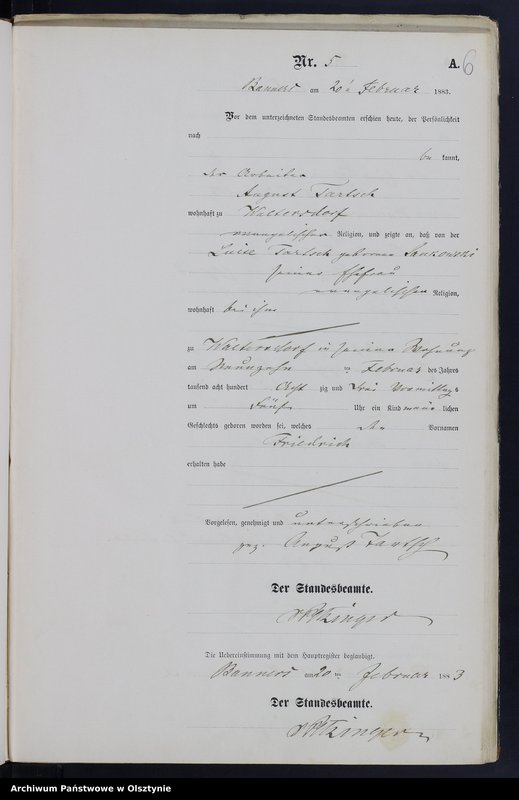 Nr. 5
A. 6
Banners am 20 ten Februar 1883.
Vor dem unterzeichneten Standesbeamten erschien heute, der Persönlichkeit
nach
be kannt,
der Arbeiter
August Tartsch
wohnhaft zu Waltersdorf
evangelischer Religion, und zeigte an, daß von der
Luise Tartsch geborenen Sankowski
seiner Ehefrau
evangelischer Religion,
wohnhaft bei ihm
zu Waltersdorf in seiner Wohnung
am Neunzehn ten Februar des Jahres
tausend acht hundert Acht zig und Drei Vormittags
um Fünf Uhr ein Kind männ lichen
Geschlechts geboren worden sei, welches den Vornamen
Friedrich
erhalten habe
Vorgelesen, genehmigt und unterschrieben
gez. August Tartsch
Der Standesbeamte.
Die Uebereinstimmung mit dem Hauptregister beglaubigt.
Banners am 20 ten Februar 1883
Der Standesbeamte.
Archiwum Państwowe w Olsztynie